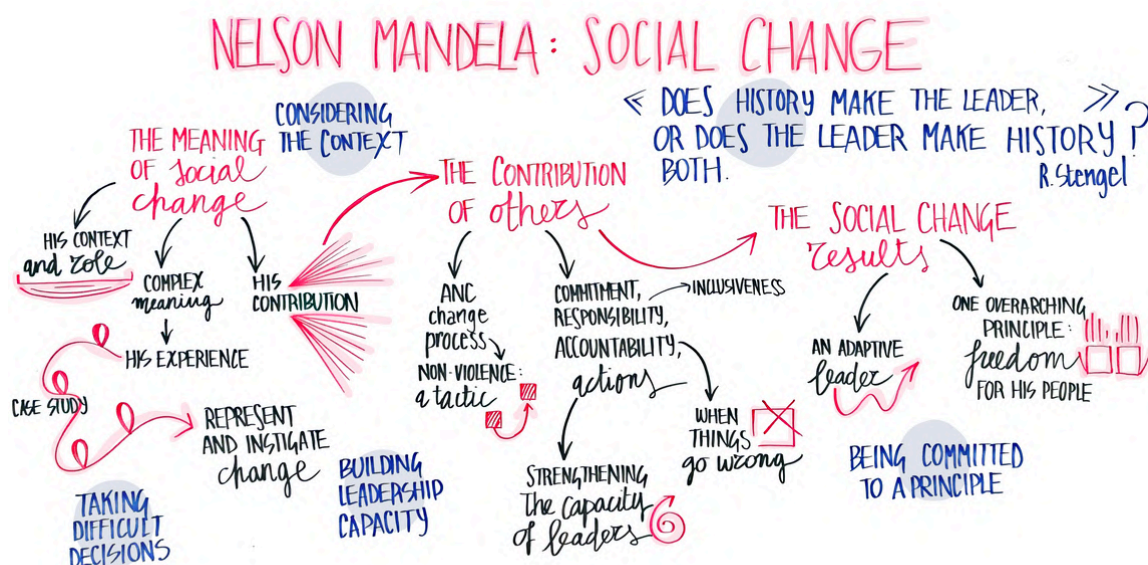 NELSON MANDELA: SOCIAL CHANGE
CONSIDERING
THE CONTEXT
« DOES HISTORY MAKE THE LEADER, »
OR DOES THE LEADER MAKE HISTORY?
BOTH.
R. Stengel
THE MEANING
OF social
change
HIS CONTEXT
and role
COMPLEX
meaning
HIS
CONTRIBUTION
HIS EXPERIENCE
CASE STUDY
REPRESENT
AND INSTIGATE
change
TAKING
DIFFICULT
DECISIONS
BUILDING
LEADERSHIP
CAPACITY
THE CONTRIBUTION
OF others
ANC
change
process
NON-VIOLENCE:
a tactic
COMMITMENT,
RESPONSIBILITY,
ACCOUNTABILITY,
actions
INCLUSIVENESS
STRENGTHENING
The capacity
of leaders
WHEN
THINGS
go wrong
THE SOCIAL CHANGE
results
AN ADAPTIVE
leader
ONE OVERARCHING
PRINCIPLE:
freedom
FOR HIS PEOPLE
BEING COMMITTED
TO A PRINCIPLE